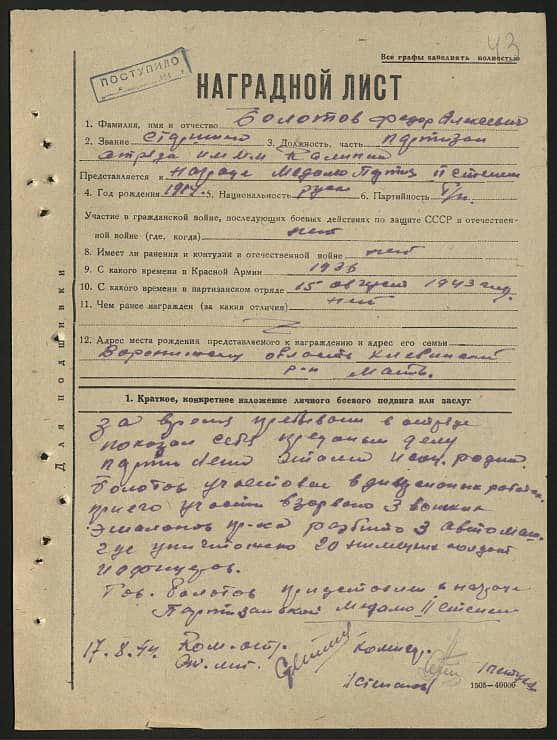 43
Все графы заполнять полностью
ПОСТУПИЛО
НАГРАДНОЙ ЛИСТ
1. Фамилия, имя и отчество Болотов Федор Алексеевич
2. Звание старшина 3. Должность, часть партизан
отряда им. Калинина
Представляется к награде Медалю Партиз II степени
4. Год рождения 1917 5. Национальность руск 6. Партийность б/п.
Участие в гражданской войне, последующих боевых действиях по защите СССР и отечествен-
ной войне (где, когда) нет
8. Имеет ли ранения и контузии в отечественной войне нет
9. С какого времени в Красной Армии 1936
10. С какого времени в партизанском отряде 15 август 1943 год.
11. Чем ранее награжден (за какия отличия) нет
12. Адрес места рождения представляемого к награждению и адрес его семьи
область
р-н мать.
Для подшивки
1. Краткое, конкретное изложение личного боевого подвига или заслуг
за время пребывани в отряде
показал себя преданым делу
Партии
Болотов участвовал в
при его участи взорвано 3
эшалона пр-ка разбито 3 автомаш.
где уничтожено 20 немецких солдат
и офицеров.
Тов. Болотов представлен к награде
Партизанской Медалю II степени
17.8.44. Ком. отр. Комисар.
1505—40000